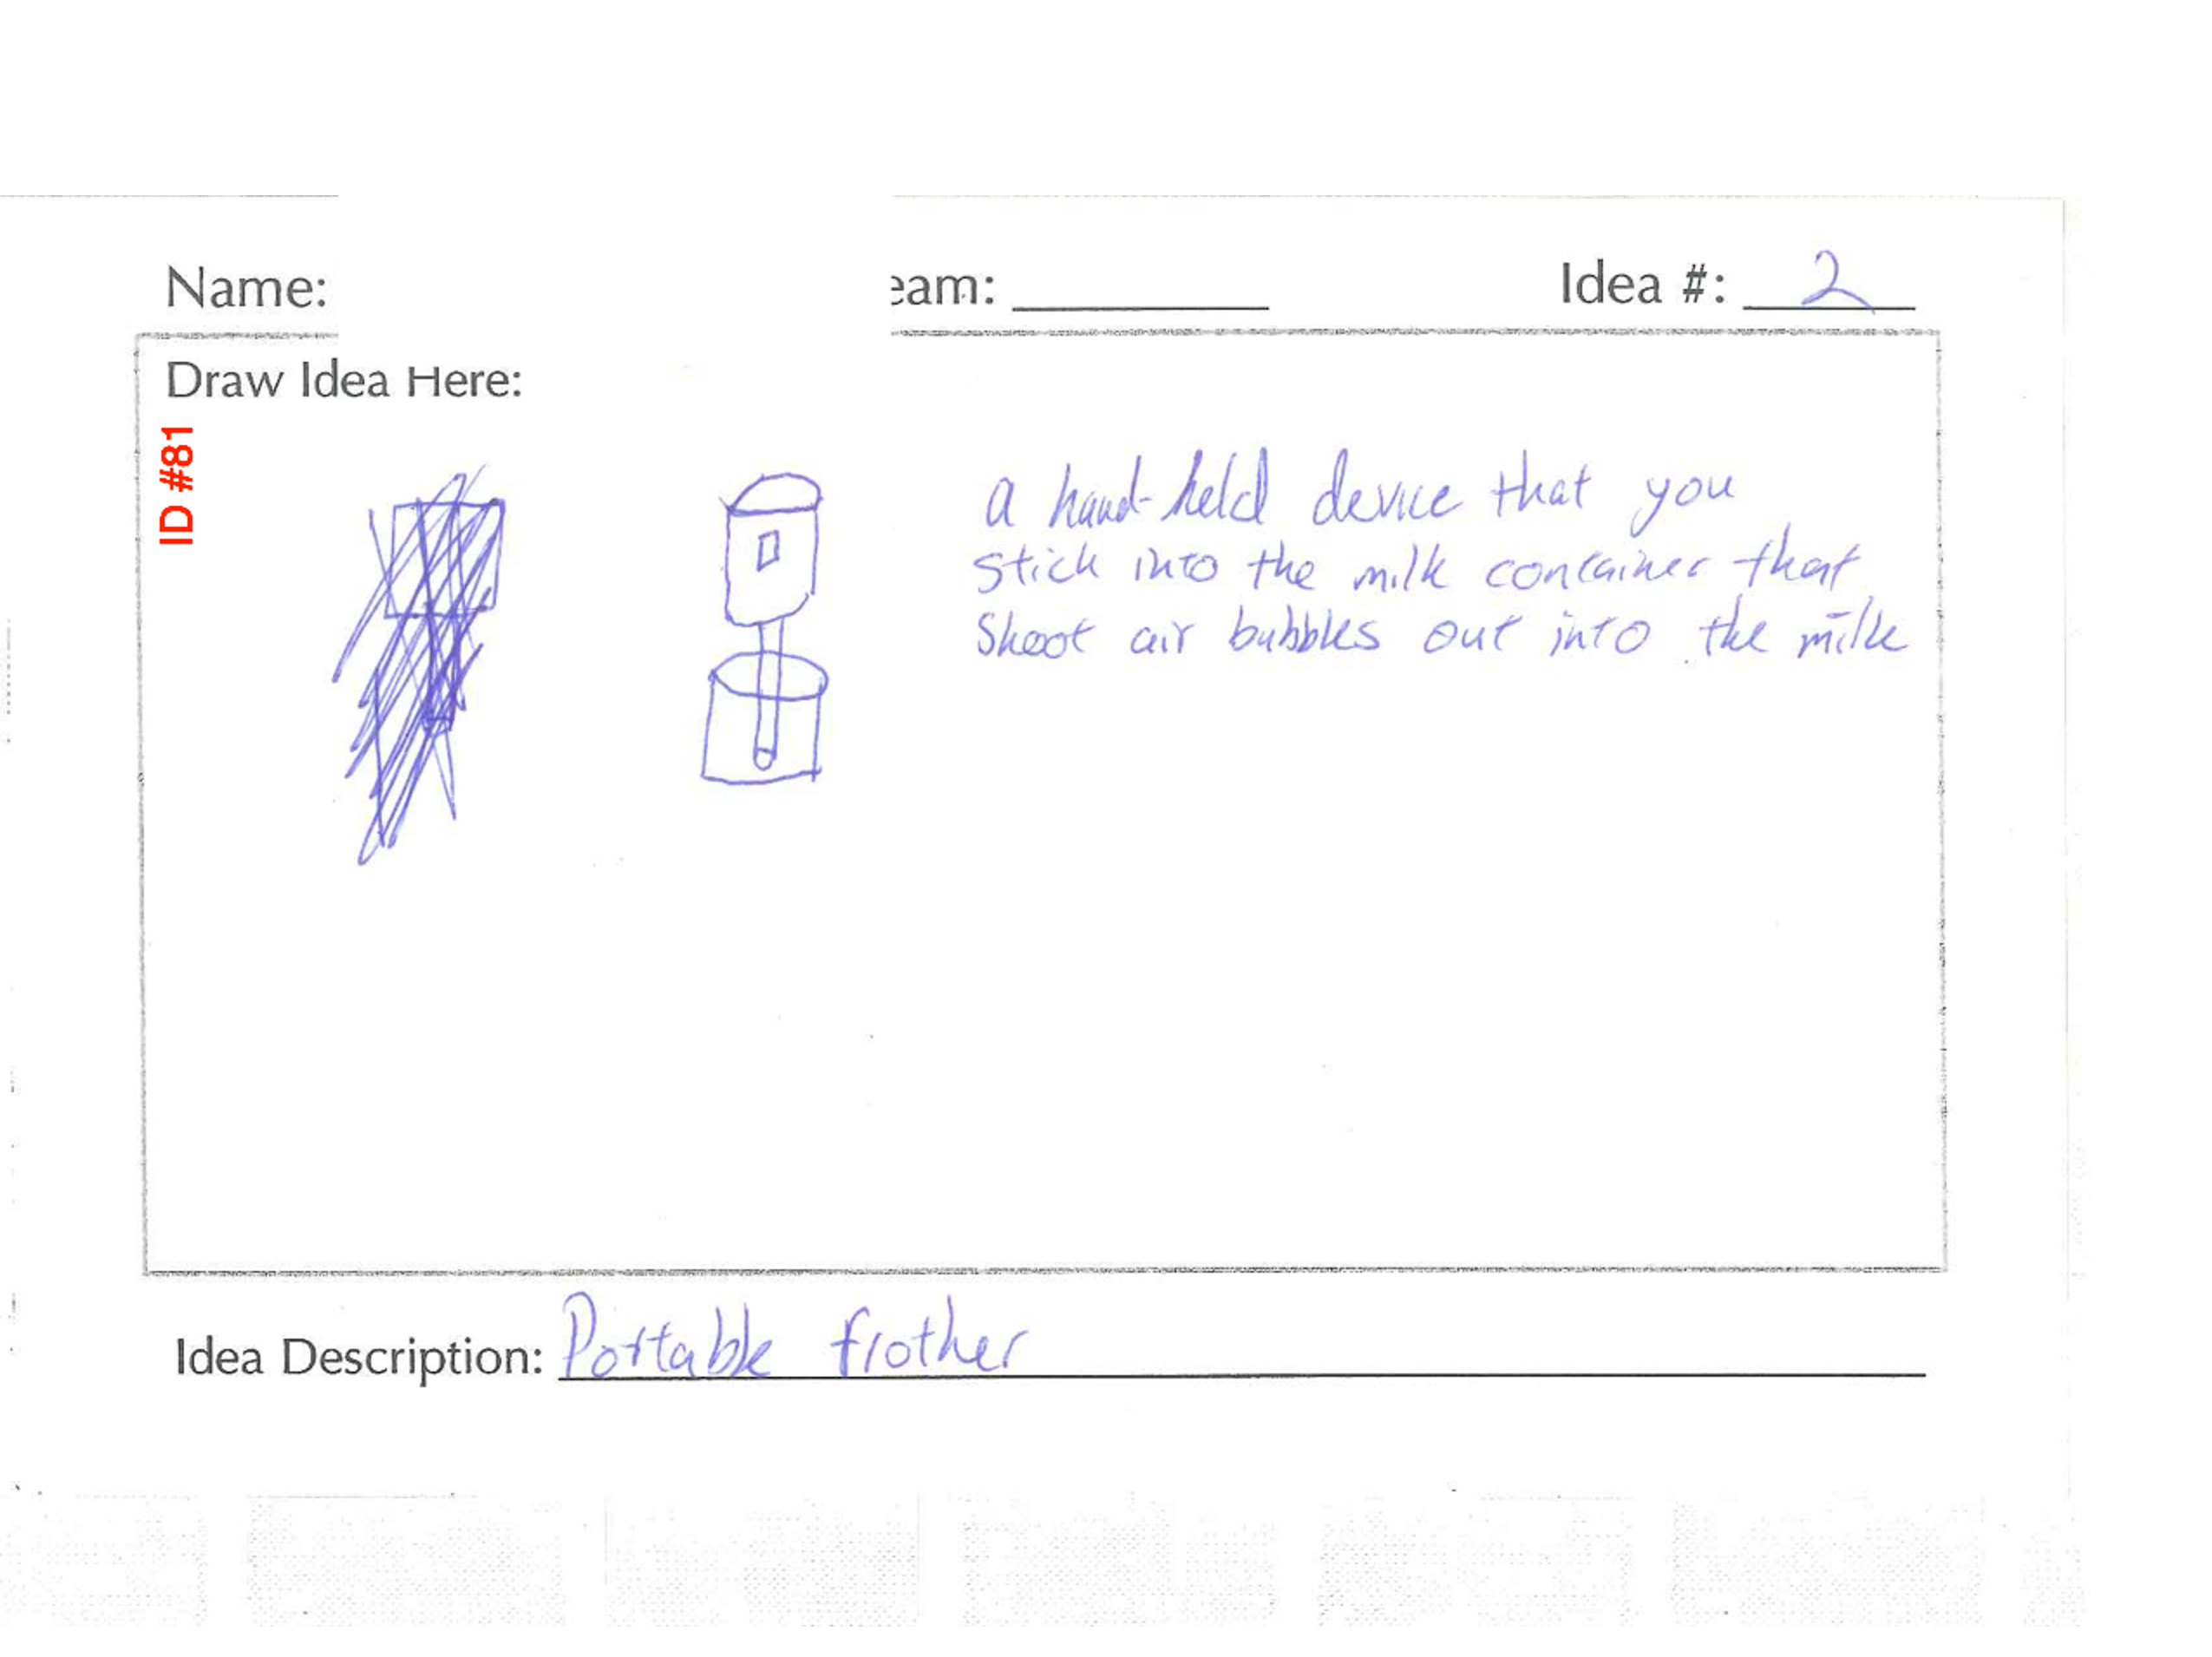 Name:
eam:
Idea #: 2
Draw Idea Here:
ID #81
a hand-held device that you
stick into the milk container that
shoot air bubbles out into the milk
Idea Description: Portable frother